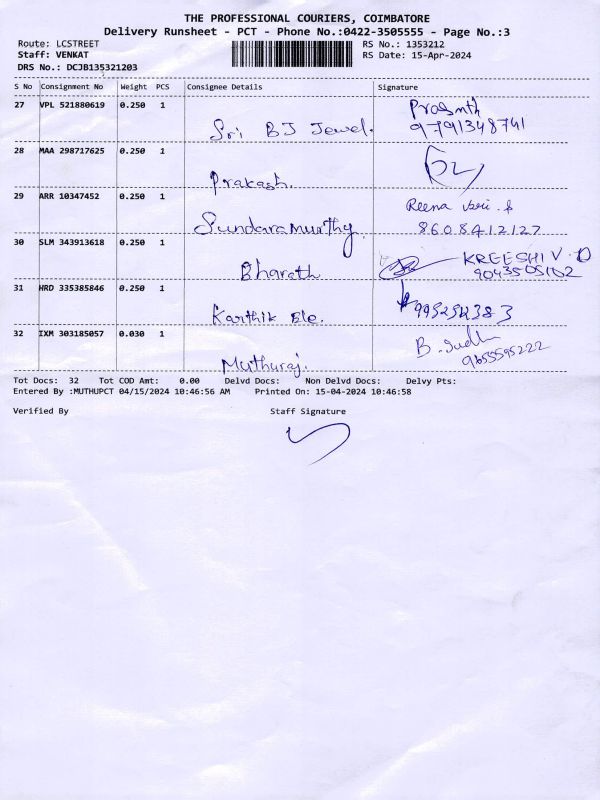 THE PROFESSIONAL COURIERS, COIMBATORE
Delivery Runsheet - PCT - Phone No.:0422-3505555 - Page No.:3
Route: LCSTREET RS No.: 1353212
Staff: VENKAT RS Date: 15-Apr-2024
DRS No.: DCJB135321203
S No Consignment No Weight PCS Consignee Details Signature
27 VPL 521880619 0.250 1 Prasnth
Sri BJ Jewel. 9791348741
28 MAA 298717625 0.250 1
Prakash.
29 ARR 10347452 0.250 1 Reena
Sundaramurthy. 8608412127
30 SLM 343913618 0.250 1 KREESHIV.D
Bharath
31 HRD 335385846 0.250 1
Karthik Ele.
32 IXM 303185057 0.030 1 B.
Muthuraj. 9655595222
Tot Docs: 32 Tot COD Amt: 0.00 Delvd Docs: Non Delvd Docs: Delvy Pts:
Entered By :MUTHUPCT 04/15/2024 10:46:56 AM Printed On: 15-04-2024 10:46:58
Verified By Staff Signature